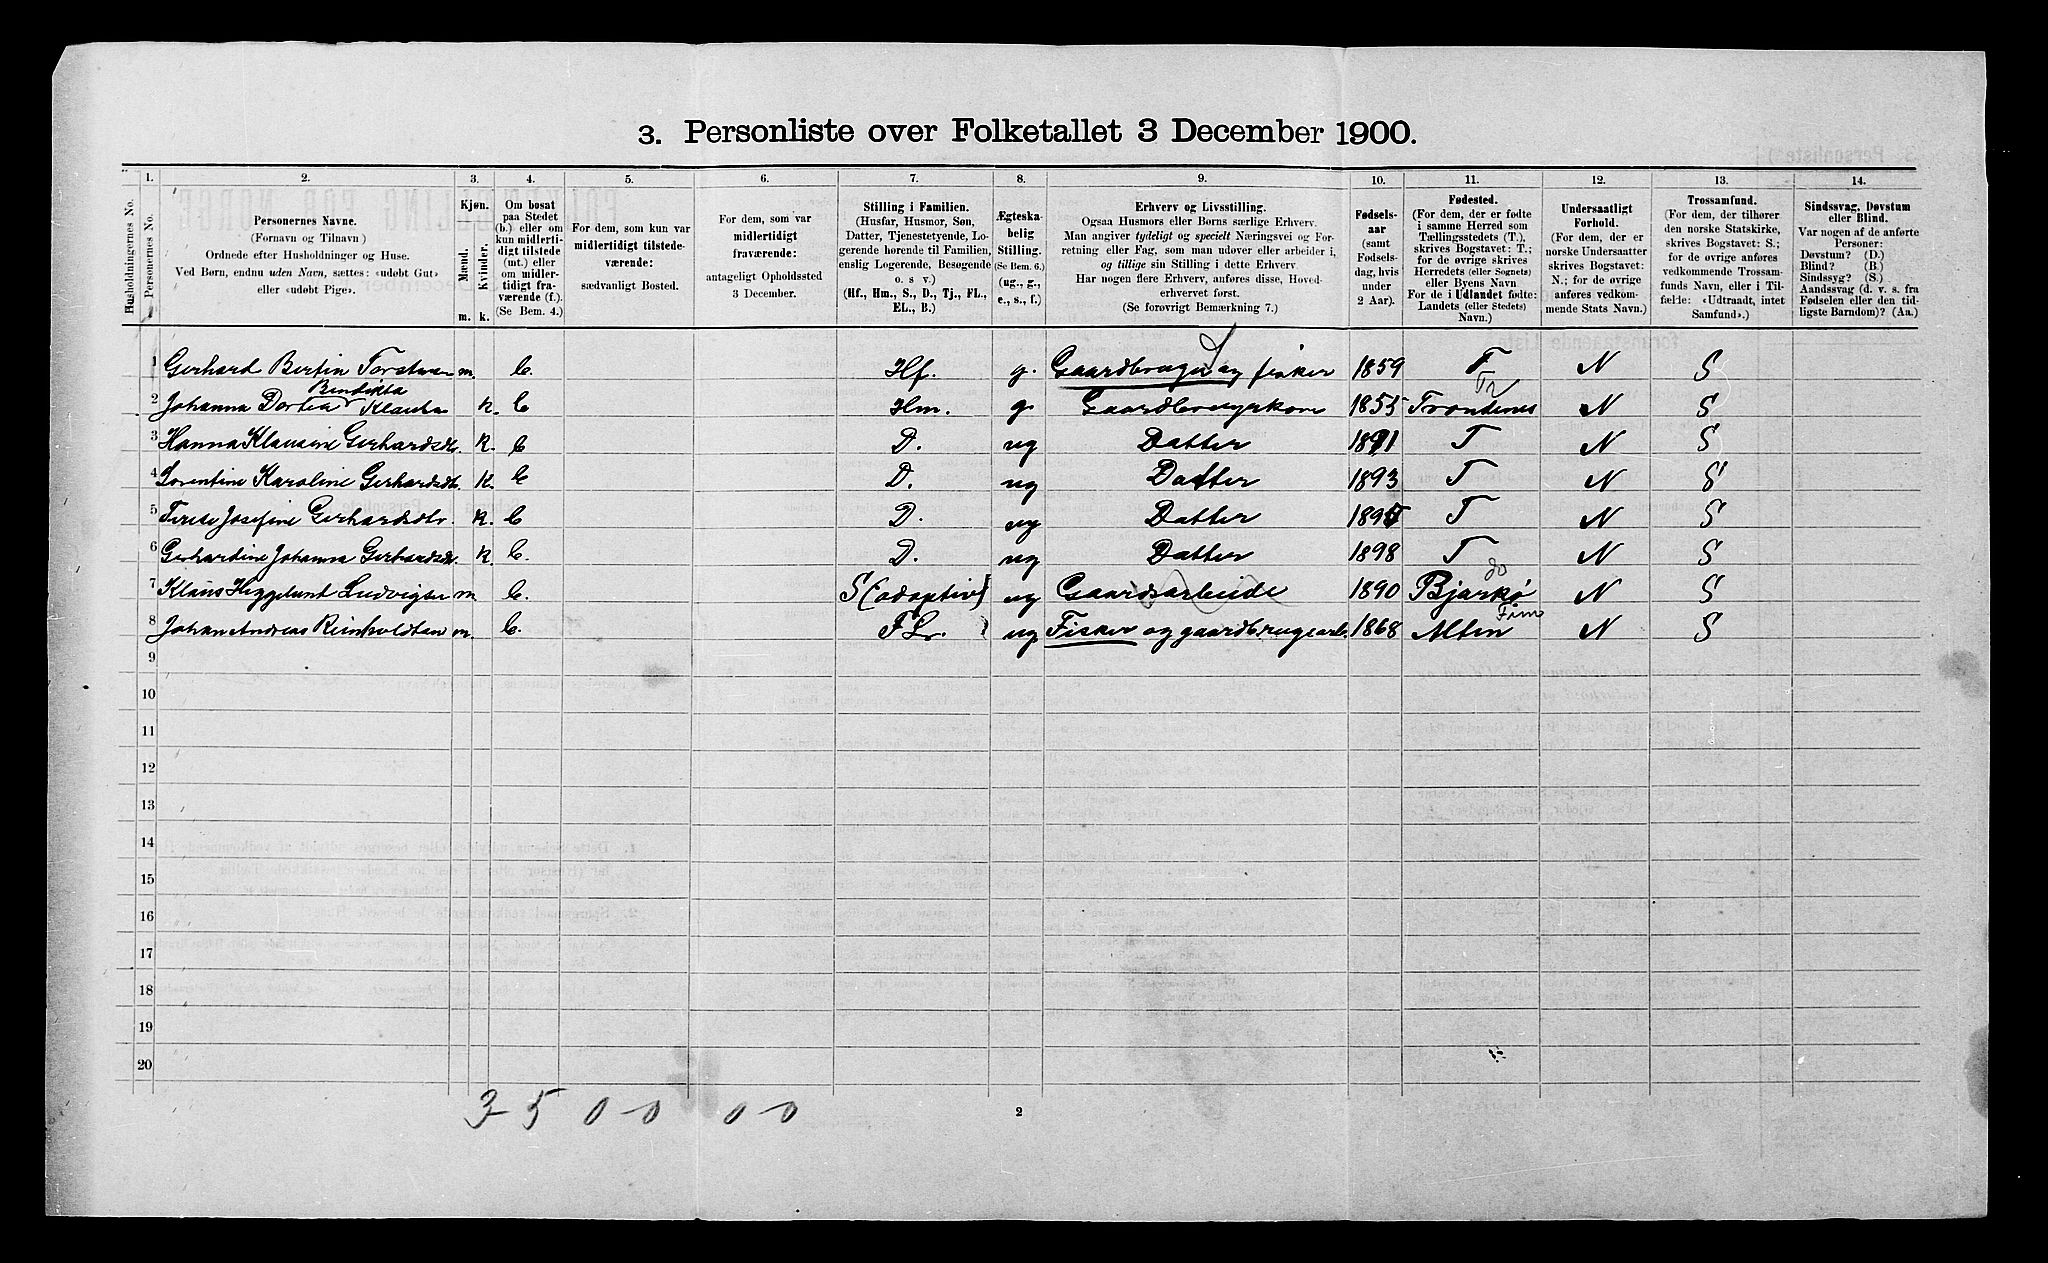 3. Personliste over Folketallet 3 December 1900.
1. 2. 3. 4. 5. 6. 7. 8. 9. 10. 11. 12. 13. 14.
Husholdningernes No.
Personernes No.
Personernes Navne.
(Fornavn og Tilnavn)
Ordnede efter Husholdninger og Huse.
Ved Børn, endnu uden Navn, sættes: «udøbt Gut»
eller «udøbt Pige».
Kjøn.
Mænd.
Kvinder.
m. k.
Om bosat
paa Stedet
(b.) eller om
kun midlerti-
digt tilstede
(mt.) eller
om midler-
tidigt fra-
værende (f.).
(Se Bem. 4.)
For dem, som kun var
midlertidigt tilstede-
værende:
sædvanligt Bosted.
For dem, som var
midlertidigt
fraværende:
antageligt Opholdssted
3 December.
Stilling i Familien.
(Husfar, Husmor, Søn,
Datter, Tjenestetyende, Lo-
gerende hørende til Familien,
enslig Logerende, Besøgende
o. s. v.)
(Hf., Hm., S., D., Tj., FL.,
EL., B.)
Ægteska-
belig
Stilling.
(Se Bem. 6.)
(ug., g.,
e., s., f.)
Erhverv og Livsstilling.
Ogsaa Husmors eller Børns særlige Erhverv.
Man angiver tydeligt og specielt Næringsvei og For-
retning eller Fag, som man udøver eller arbeider i,
og tillige sin Stilling i dette Erhverv.
Har nogen flere Erhverv, anføres disse, Hoved-
erhvervet først.
(Se forøvrigt Bemærkning 7.)
Fødsels-
aar
(samt
Fødsels-
dag, hvis
under
2 Aar).
Fødested.
(For dem, der er fødte
i samme Herred som
Tællingsstedets (T.),
skrives Bogstavet: T.;
for de øvrige skrives
Herredets (eller Sognets)
eller Byens Navn
For de i Udlandet fødte:
Landets (eller Stedets)
Navn.)
Undersaatligt
Forhold.
(For dem, der er
norske Undersaatter
skrives Bogstavet:
N.; for de øvrige
anføres vedkom-
mende Stats Navn.)
Trossamfund.
(For dem, der tilhører
den norske Statskirke,
skrives Bogstavet: S.;
for de øvrige anføres
vedkommende Trossam-
funds Navn, eller i Til-
fælde: «Udtraadt, intet
Samfund».)
Sindssvag, Døvstum
eller Blind.
Var nogen af de anførte
Personer:
Døvstum? (D.)
Blind? (B.)
Sindssyg? (S.)
Aandssvag (d. v. s. fra
Fødselen eller den tid-
ligste Barndom)? (Aa.)
1 Gerhard Bertin m. b. Hf. g. Gaardbruger og fisker 1859 T N S
Bendikta Tr
2 Johanna Dortea k. b Hm. g. 1855 Trondenes N S
3 Hanna Klausine Gerhardsdtr. k. b D. ug Datter 1891 T N S
4 Lorentine Karoline Gerhardsdtr. k. b D. ug Datter 1893 T N S
5 Josefine Gerhardsdtr. k. b D. ug Datter 1895 T N S
6 Gerhardine Johanna Gerhardsdtr. k. b. D. ug Datter 1898 T N S
do
7 Klaus Heggelund Ludvigsen m b. S (adoptiv) ug Gaardsarbeide 1890 Bjarkø N S
Finm
8 Johan Andreas m. b. FL. ug Fisker og gaardbrugsarb. 1868 Alten N S
9
10
11
12
13
14
15
16
17
18
19
20
3-5 0-0 0-0
2